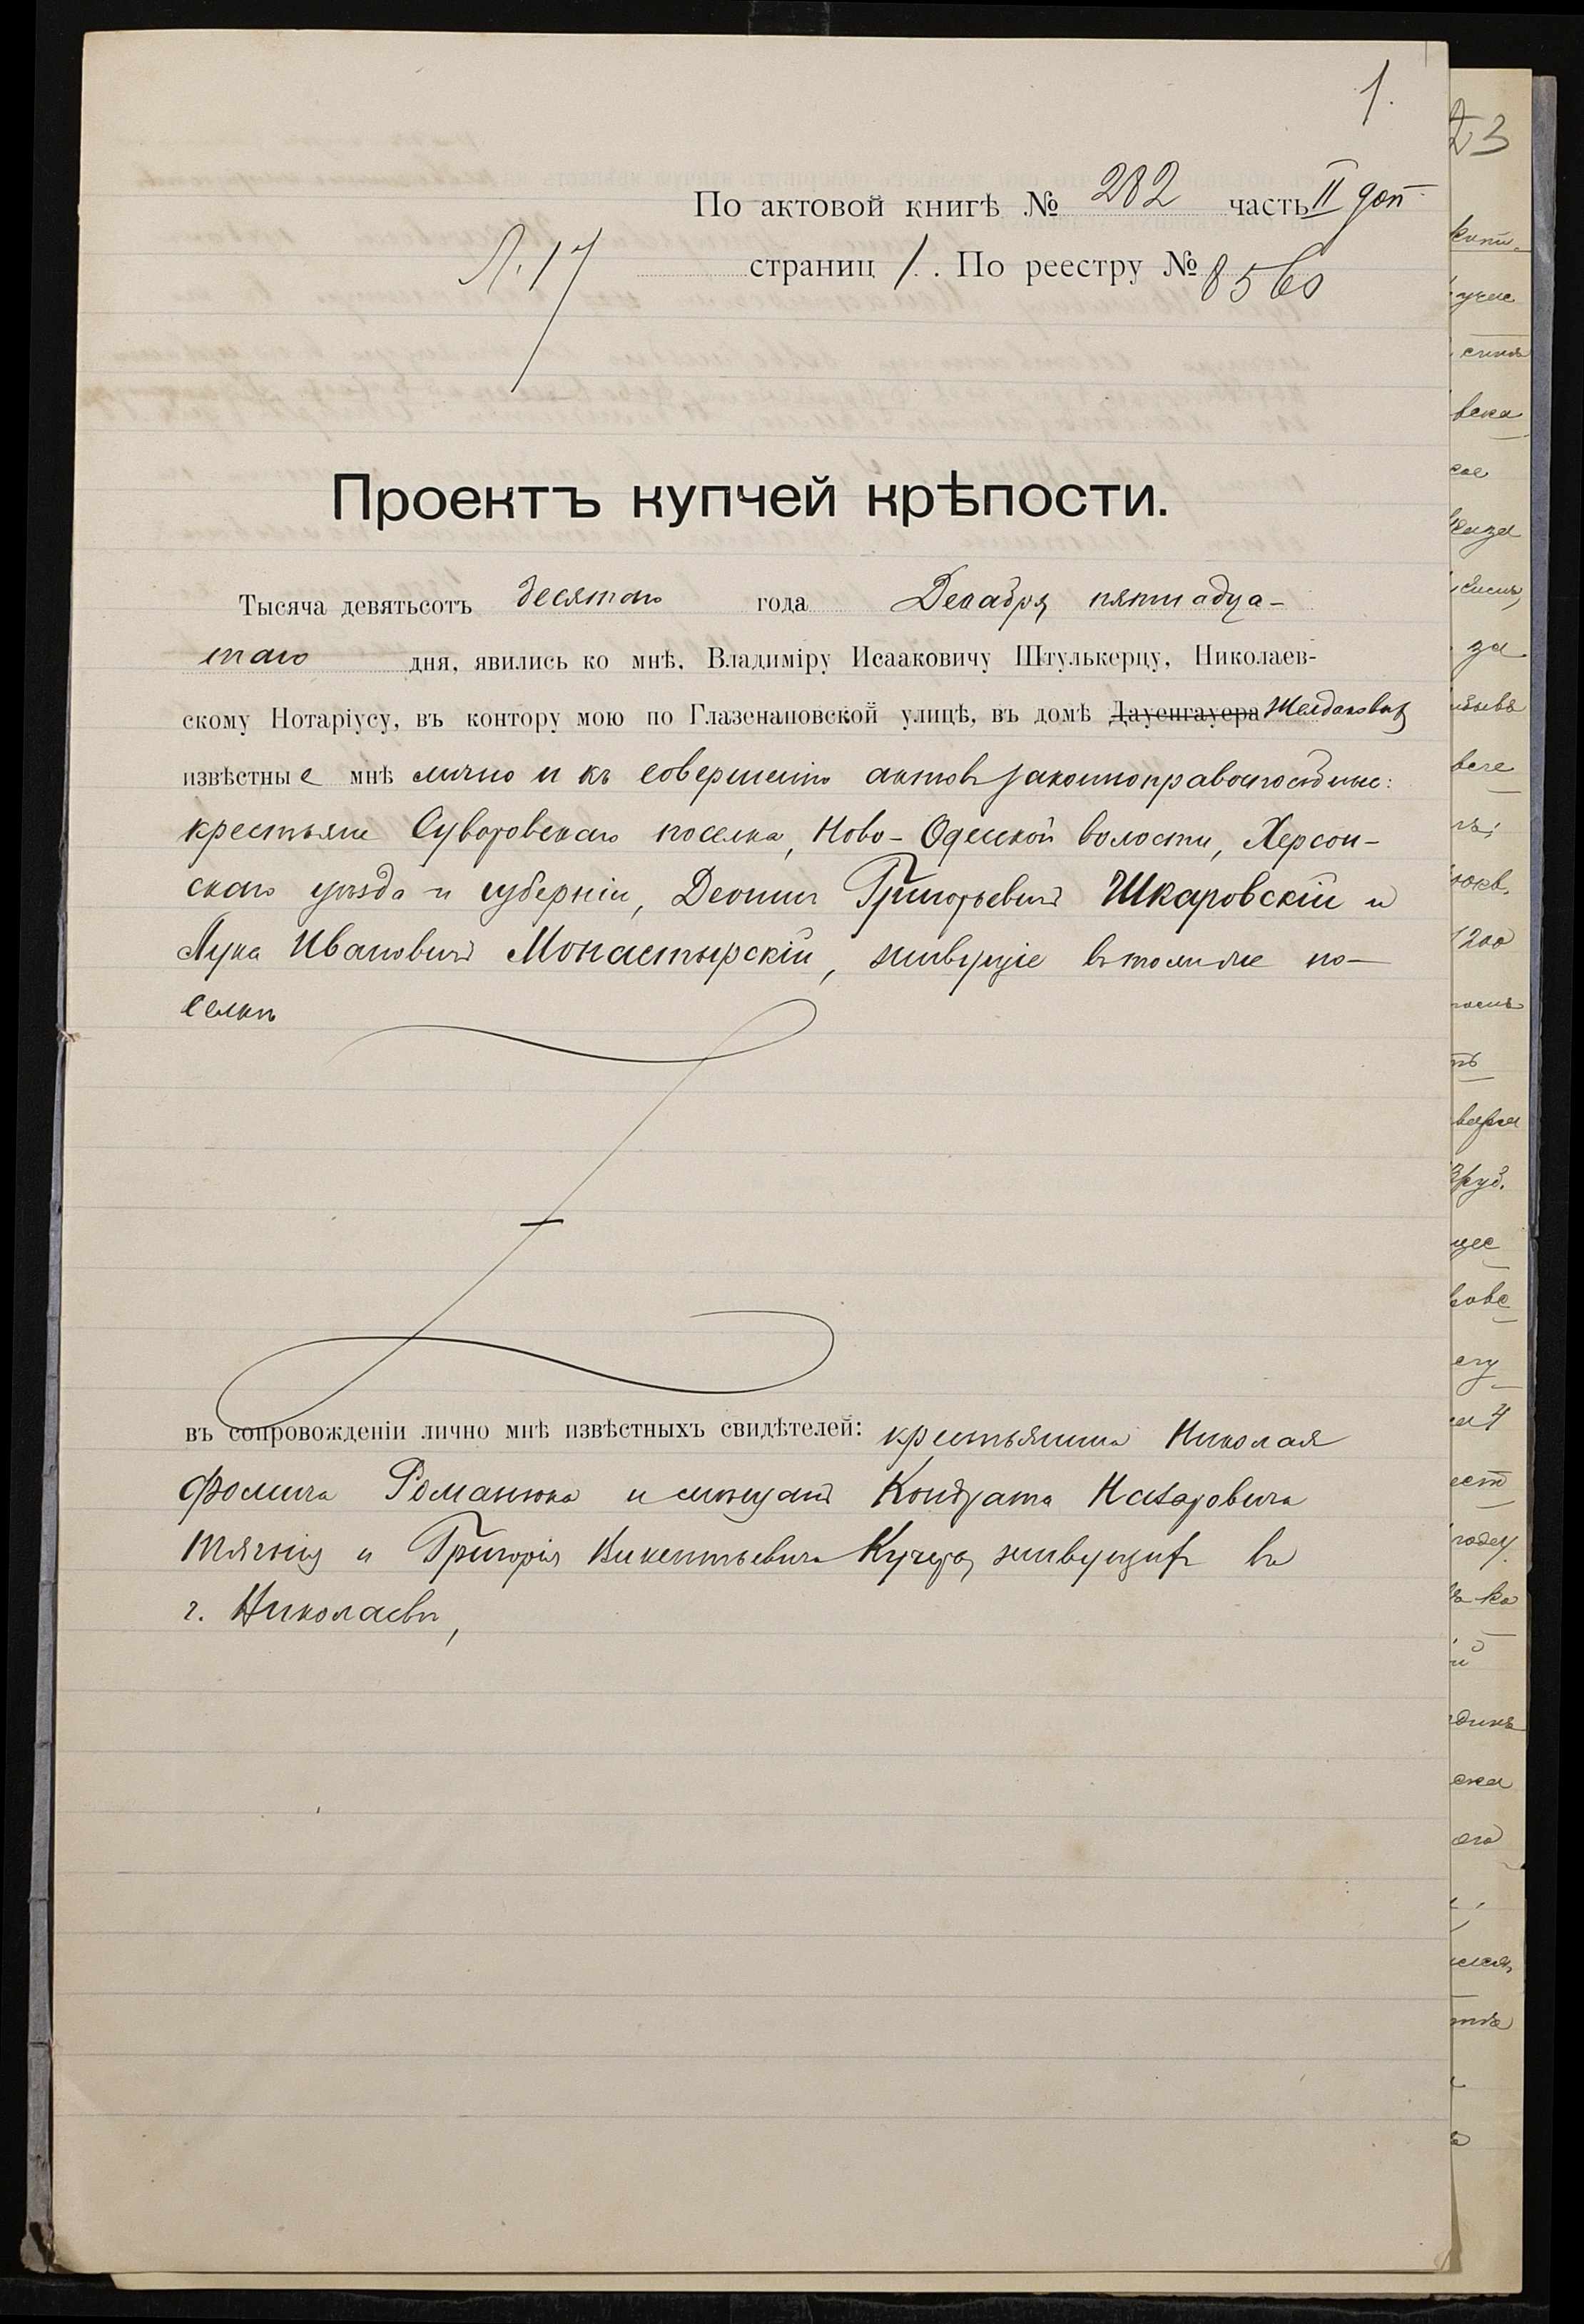 1.
По актовой книгѣ № 282 часть II доп
Л. 17 страниц 1. По реестру № 8560
Проектъ купчей крѣпости.
Тысяча девятьсотъ десятаго года Декабря пятнадца-
таго дня, явились ко мнѣ, Владиміру Исааковичу Штулькерцу, Николаев-
скому Нотаріусу, въ контору мою по Глазенаповской улицѣ, въ домѣ Дауенгауера
извѣстные мнѣ лично и къ совершенію актовъ законноправоспособные:
крестьяне Суворовскаго поселка, Ново-Одесской волости, Херсон-
скаго уѣзда и губерніи, Леонтій Григорьевичъ Шкаровскій и
Лука Ивановичъ Монастырскій, живущіе въ томъ же по-
селкѣ
въ сопровожденіи лично мнѣ извѣстныхъ свидѣтелей: крестьянина Николая
Фомича Романюка и мѣщанъ Кондрата Назаровича
и Григорія Викентьевича Кучера, живущихъ въ
г. Николаевѣ,